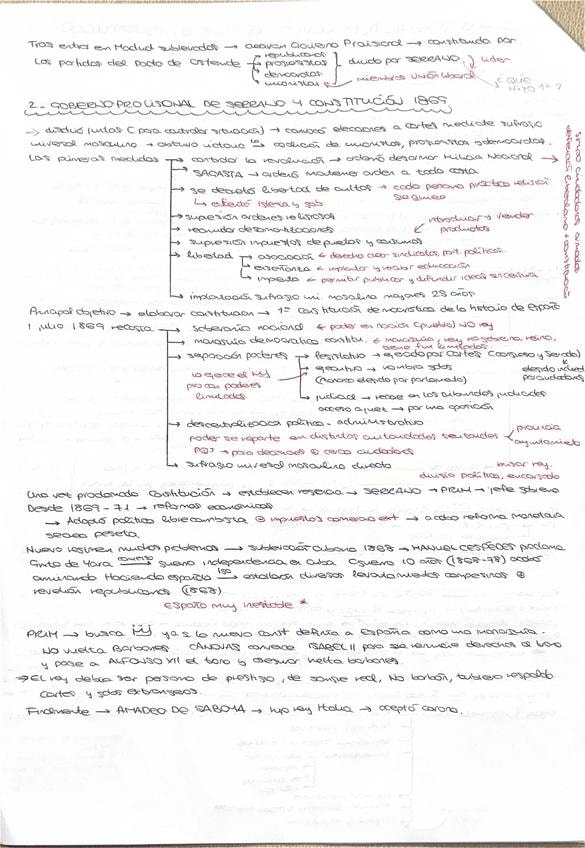 Tras entrar en Madrid sublevados → crearon Gobierno Provisional → constituido por
Los partidos del Pacto de Ostende
republicanos
progresistas
demócratas
unionistas
dirigido por SERRANO
líder
miembros Unión Liberal
QUÉ HIZO 1º?
2.- GOBIERNO PROVISIONAL DE SERRANO Y CONSTITUCIÓN 1869
→ disolvió juntas para controlar situación → convocó elecciones a cortes mediante sufragio
universal masculino → obtuvo victoria la coalición de unionistas, progresistas y demócratas.
Las primeras medidas
controlar la revolución → ordenó desarmar Milicia Nacional →
SAGASTA → ordenó mantener orden a toda costa
se decretó libertad de cultos → cada persona practica religión
se quiere
↳ afectó iglesia y gob
supresión órdenes religiosas
reanudar desamortizaciones
supresión impuestos de puertas y consumos
introducir y vender
productos
libertad
asociación ← derecho crear sindicatos, part. políticos.
enseñanza ← impartir y recibir educación
imprenta ← permitir publicar y difundir ideas sin censura
implantación sufragio uni. masculino mayores 25 años
Principal objetivo → elaborar constitución → 1ª constitución democrática de la historia de España
1 julio 1869 recogía
soberanía nacional ← poder en nación (pueblo) NO rey
monarquía democrática constitu. ← monarquía, rey no gobierna, reina,
tiene fun limitadas.
separación poderes
legislativo → ejercido por cortes (congreso y senado)
elegido indirect
por ciudadanos
ejecutivo → nombra gobs
(honoro elegido por parlamento)
lo ejerce el rey
pero con poderes
limitados
judicial → recae en los tribunales judiciales
acceso a juet → por una oposición
descentralización política - administrativa
poder se reparte en distintas autoridades
provincia
ayuntamiento
→ para decisiones ⊕ cerca ciudadanos
sufragio universal masculino directo
buscar rey.
división política, encargado
Una vez proclamada Constitución → establecer regencia → SERRANO → PRIM → jefe gobierno
Desde 1869 - 71 → reformas económicas
→ Adoptó política librecambista ⊖ impuestos comercio ext → acabo reforma monetaria
se crea peseta.
Nuevo régimen muchos problemas → sublevación cubana 1868 → MANUEL CÉSPEDES proclama
Grito de Yara comienzo → guerra independencia en Cuba Guerra 10 años (1868-78) acabó
arruinando Hacienda española → estallan diversos levantamientos campesinos ⊕
revolución republicana (1868)
España muy inestable *
PRIM → busca rey ya q la nueva const definía a España como una monarquía.
NO vuelta Borbones. CÁNOVAS convence ISABEL II para se renuncie derechos al trono
y pase a ALFONSO XII el trono y asegurar vuelta borbones.
→ El rey debía ser persona de prestigio, de sangre real, NO Borbón, tuviera respaldo
cortes y gobs extranjeros.
Finalmente → AMADEO DE SABOYA → hijo rey Italia → aceptó corona.